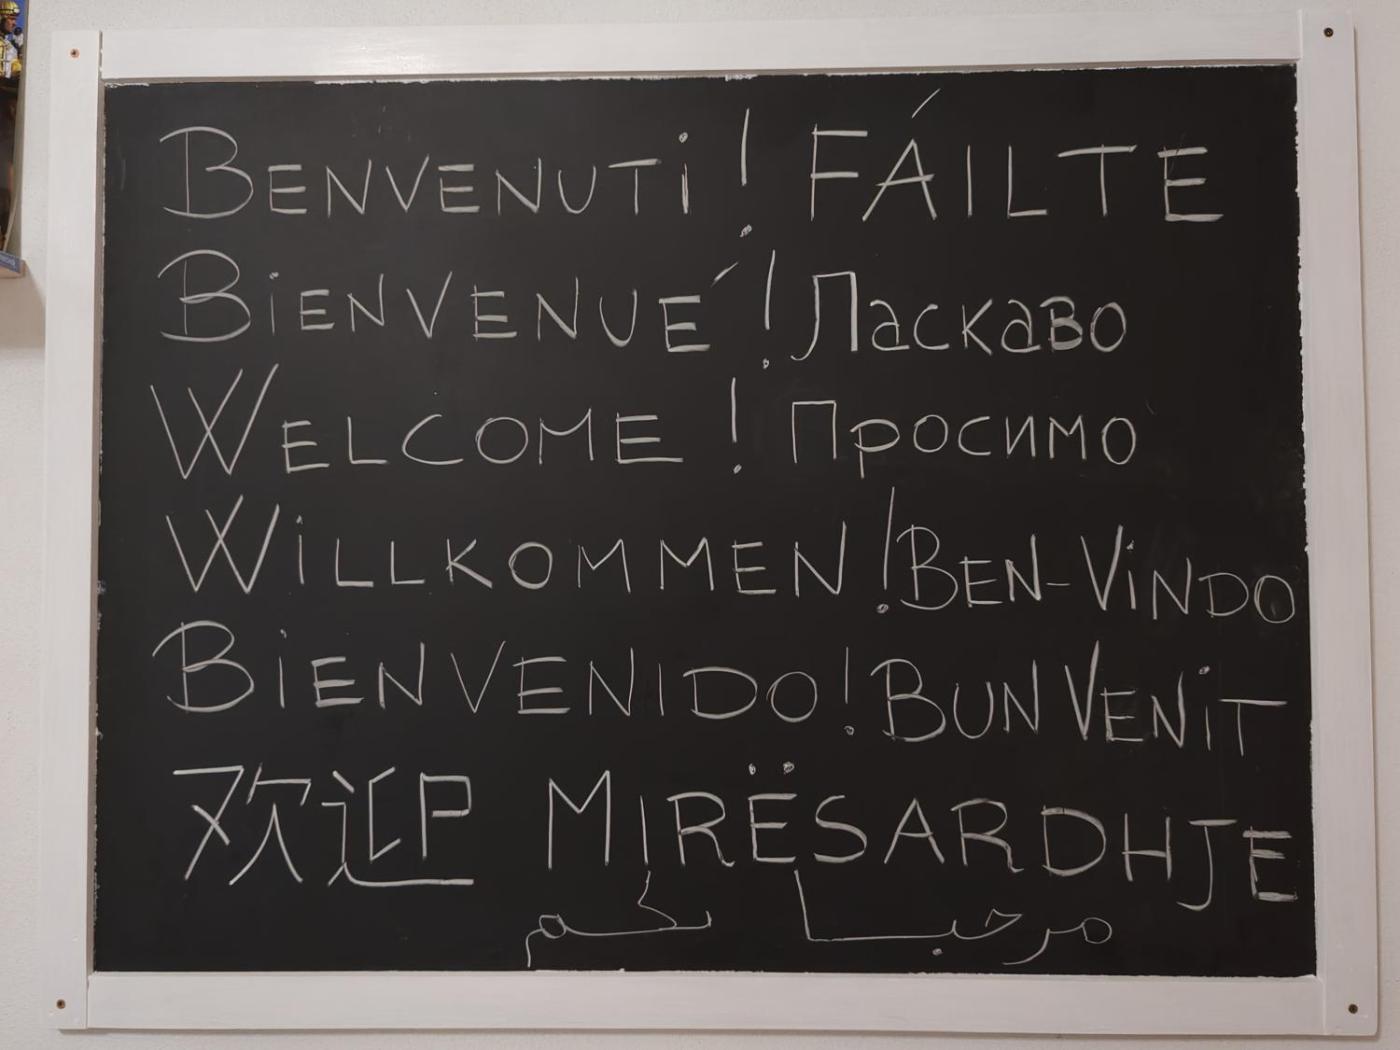 BENVENUTi! FÁILTE
BiENVENUÉ! Ласкаво
WELCOME! Просимо
WiLLKOMMEN! BEN-ViNDO
BiENVENIDO! BUN VENiT
欢迎 MIRËSARDHJE
مرحبا بكم